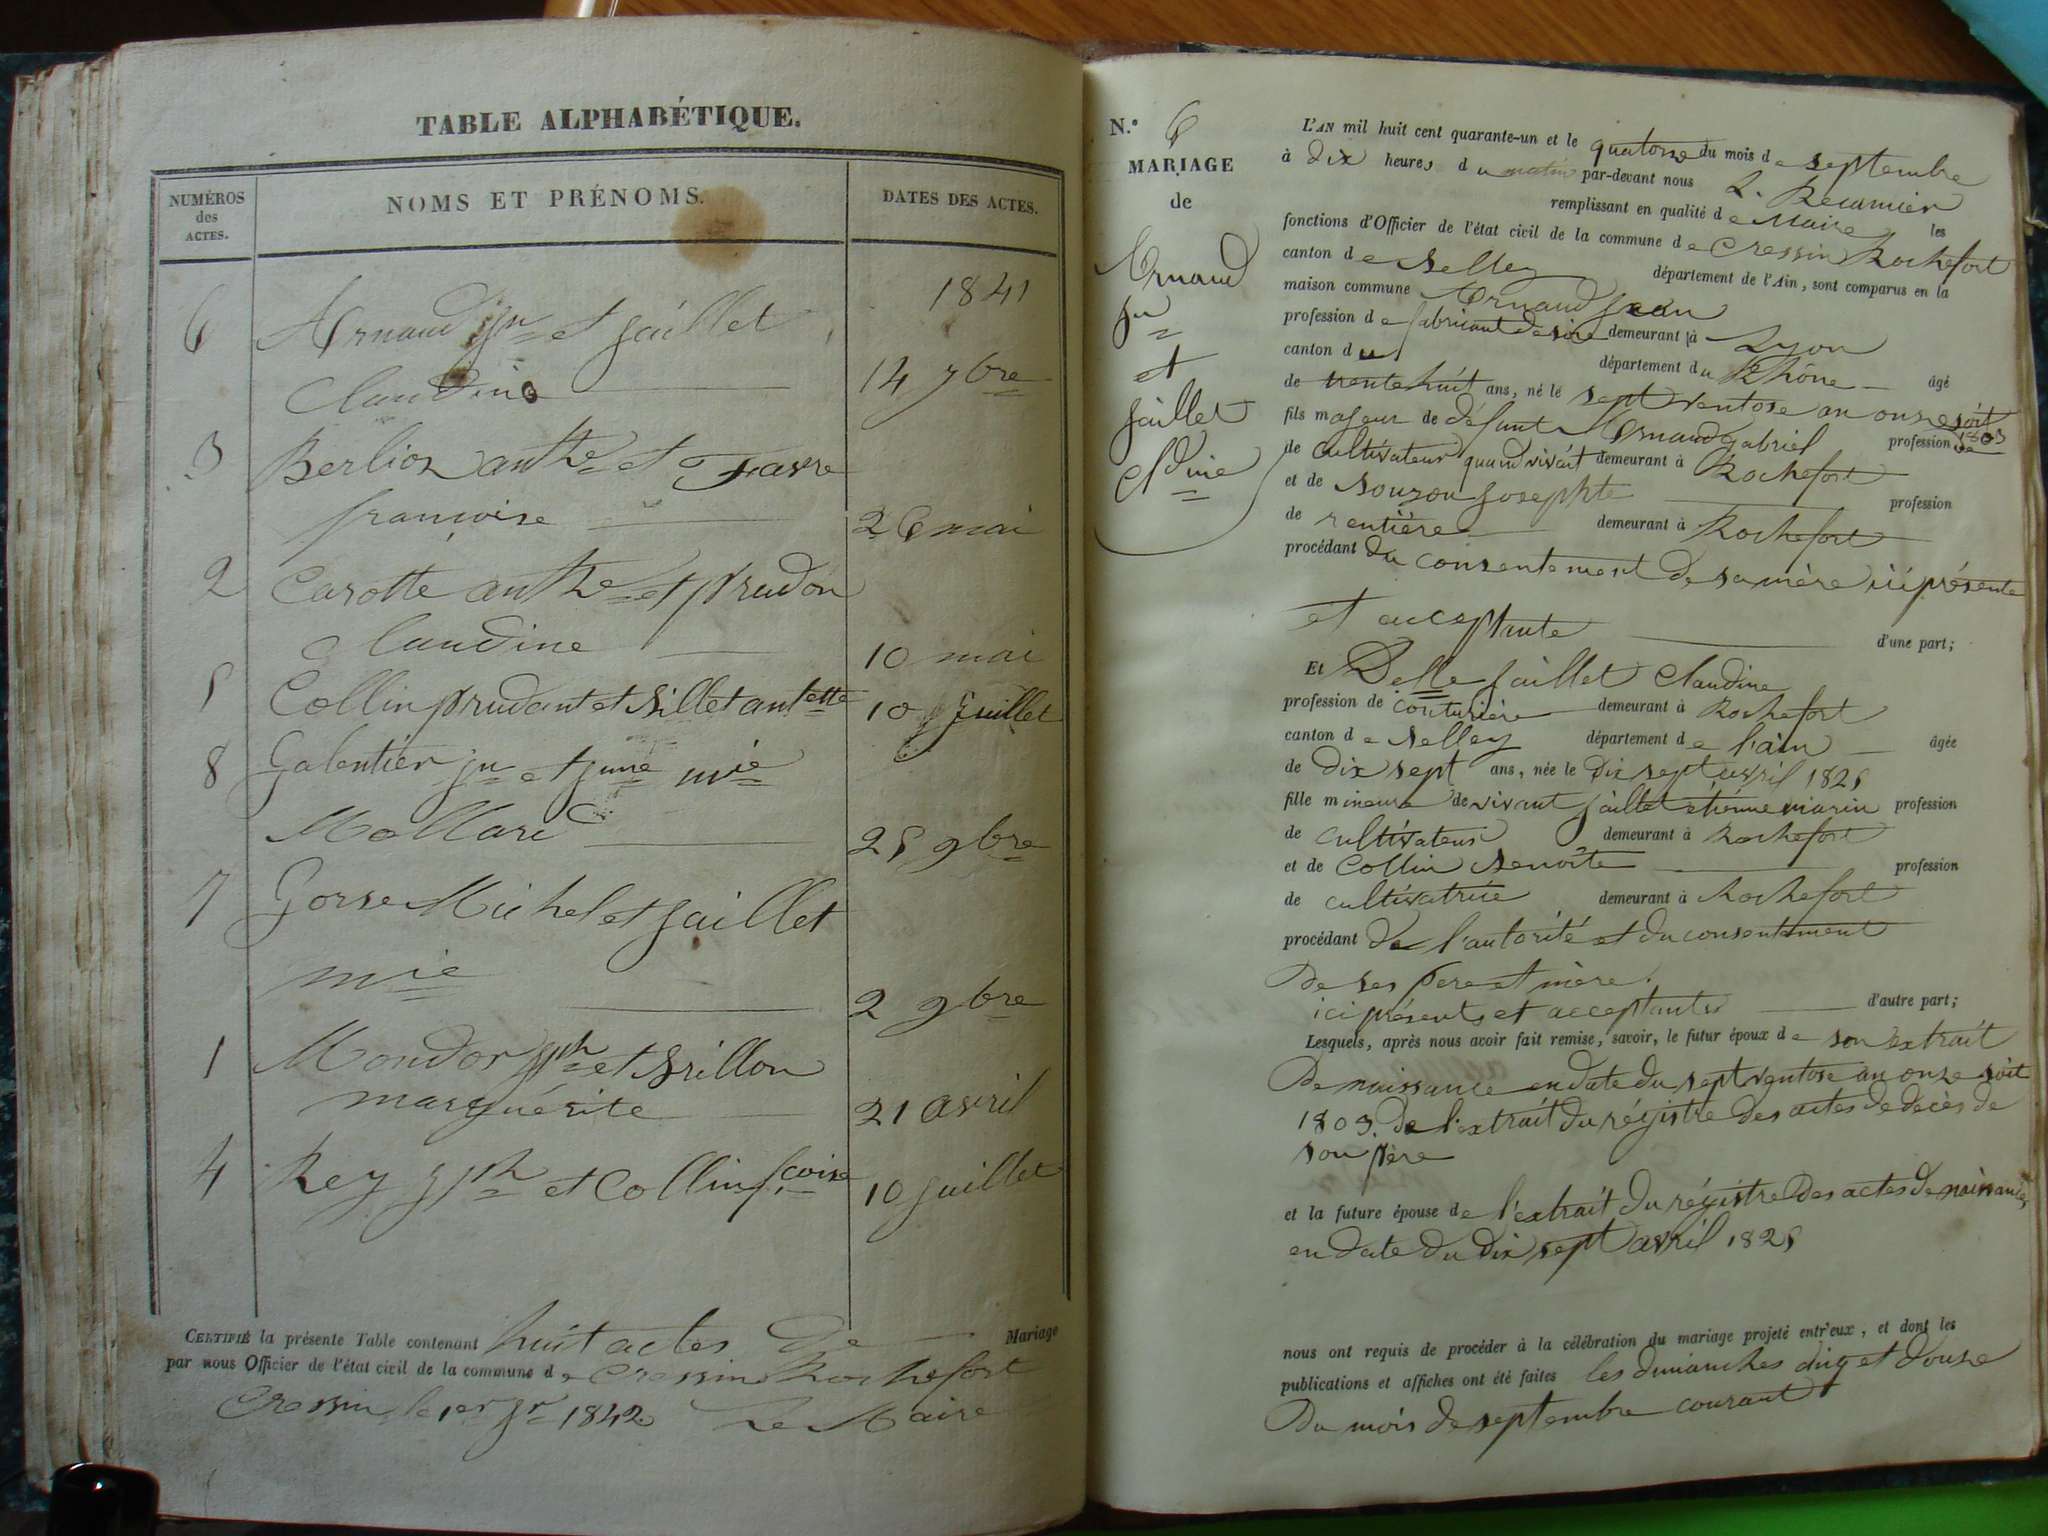 TABLE ALPHABÉTIQUE.
NUMÉROS des ACTES.
NOMS ET PRÉNOMS.
DATES DES ACTES.
1841
6 Arnaud jn et Jaillet
Claudine 14 7bre
3 Berlioz anthe et Favre
françoise 26 mai
2 Carotte anthe et prudon
Claudine 10 mai
5 Collin prudant et Billet antette 10 Juillet
8 Galentier jn et june mie
Mollard 25 9bre
7 Gorse Michel et Jaillet
mie 2 9bre
1 Mondor jph et Brillon
marguérite 21 avril
4 Rey jph et Collin fcoise 10 juillet
CERTIFIÉ la présente Table contenant huit actes de Mariage
par nous Officier de l'état civil de la commune de Cressin Rochefort
Cressin le 1er jr 1842 Le Maire
N.° 6
MARIAGE
de
Arnaud
jn
et
Jaillet
Cldine
L'AN mil huit cent quarante-un et le quatorze du mois de septembre
à dix heures du matin par-devant nous L. Recamier
remplissant en qualité de Maire les
fonctions d'Officier de l'état civil de la commune de Cressin Rochefort
canton de Belley département de l'Ain, sont comparus en la
maison commune Arnaud Jean
profession de fabricant de soie demeurant à Lyon
canton du département du Rhône âgé
de trente huit ans, né le sept ventose an onze soit 1803
fils majeur de défunt Arnaud gabriel profession
de cultivateur quand vivait demeurant à Rochefort
et de Bouzon Josephte profession
de rentière demeurant à Rochefort
procédant du consentement de sa mère ici présente
et acceptante d'une part;
Et Delle Jaillet Claudine
profession de couturière demeurant à Rochefort
canton de Belley département de l'ain âgée
de dix sept ans, née le dix sept avril 1825
fille mineure de vivant Jaillet étienne marin profession
de cultivateur demeurant à Rochefort
et de Collin Benoîte profession
de cultivatrice demeurant à Rochefort
procédant de l'autorité et du consentement
de ses pere et mère
ici présents et acceptants d'autre part;
Lesquels, après nous avoir fait remise, savoir, le futur époux de son extrait
de naissance en date du sept ventose an onze soit
1803. de l'extrait du régistre des actes de decès de
son père
et la future épouse de l'extrait du régistre des actes de naissance
en date du dix sept avril 1825
nous ont requis de procéder à la célébration du mariage projeté entr'eux, et dont les
publications et affiches ont été faites les dimanches cinq et douze
du mois de septembre courant